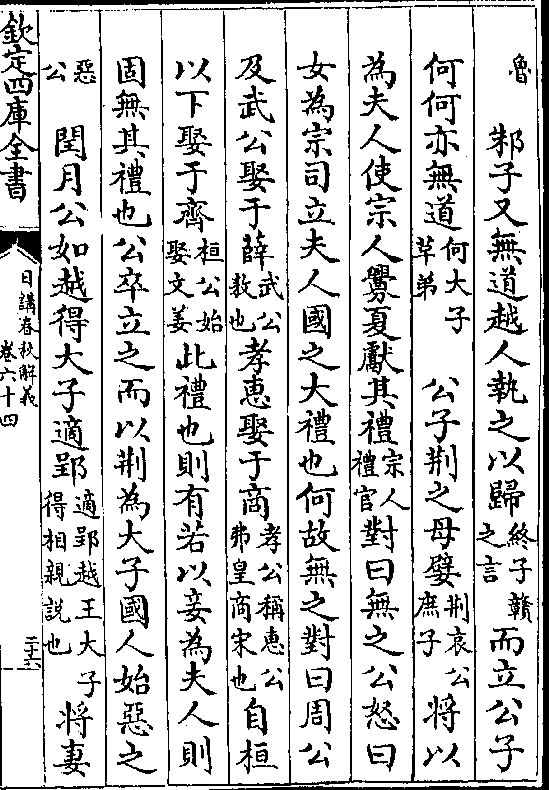 魯 邾子又無道越人執之以歸終子贛之言而立公子
何何亦無道何大子草弟 公子荆之母嬖荆哀公庶子將以
為夫人使宗人釁夏獻其禮宗人禮官對曰無之公怒曰
女為宗司立夫人國之大禮也何故無之對曰周公
及武公娶于薛武公敖也孝惠娶于商孝公稱惠公弗皇商宋也自桓
以下娶于齊桓公始娶文姜此禮也則有若以妾為夫人則
固無其禮也公卒立之而以荆為大子國人始惡之
惡公 閏月公如越得大子適郢適郢越王大子得相親說也將妻
欽定四庫全書
日講春秋解義
卷六十四
二十六